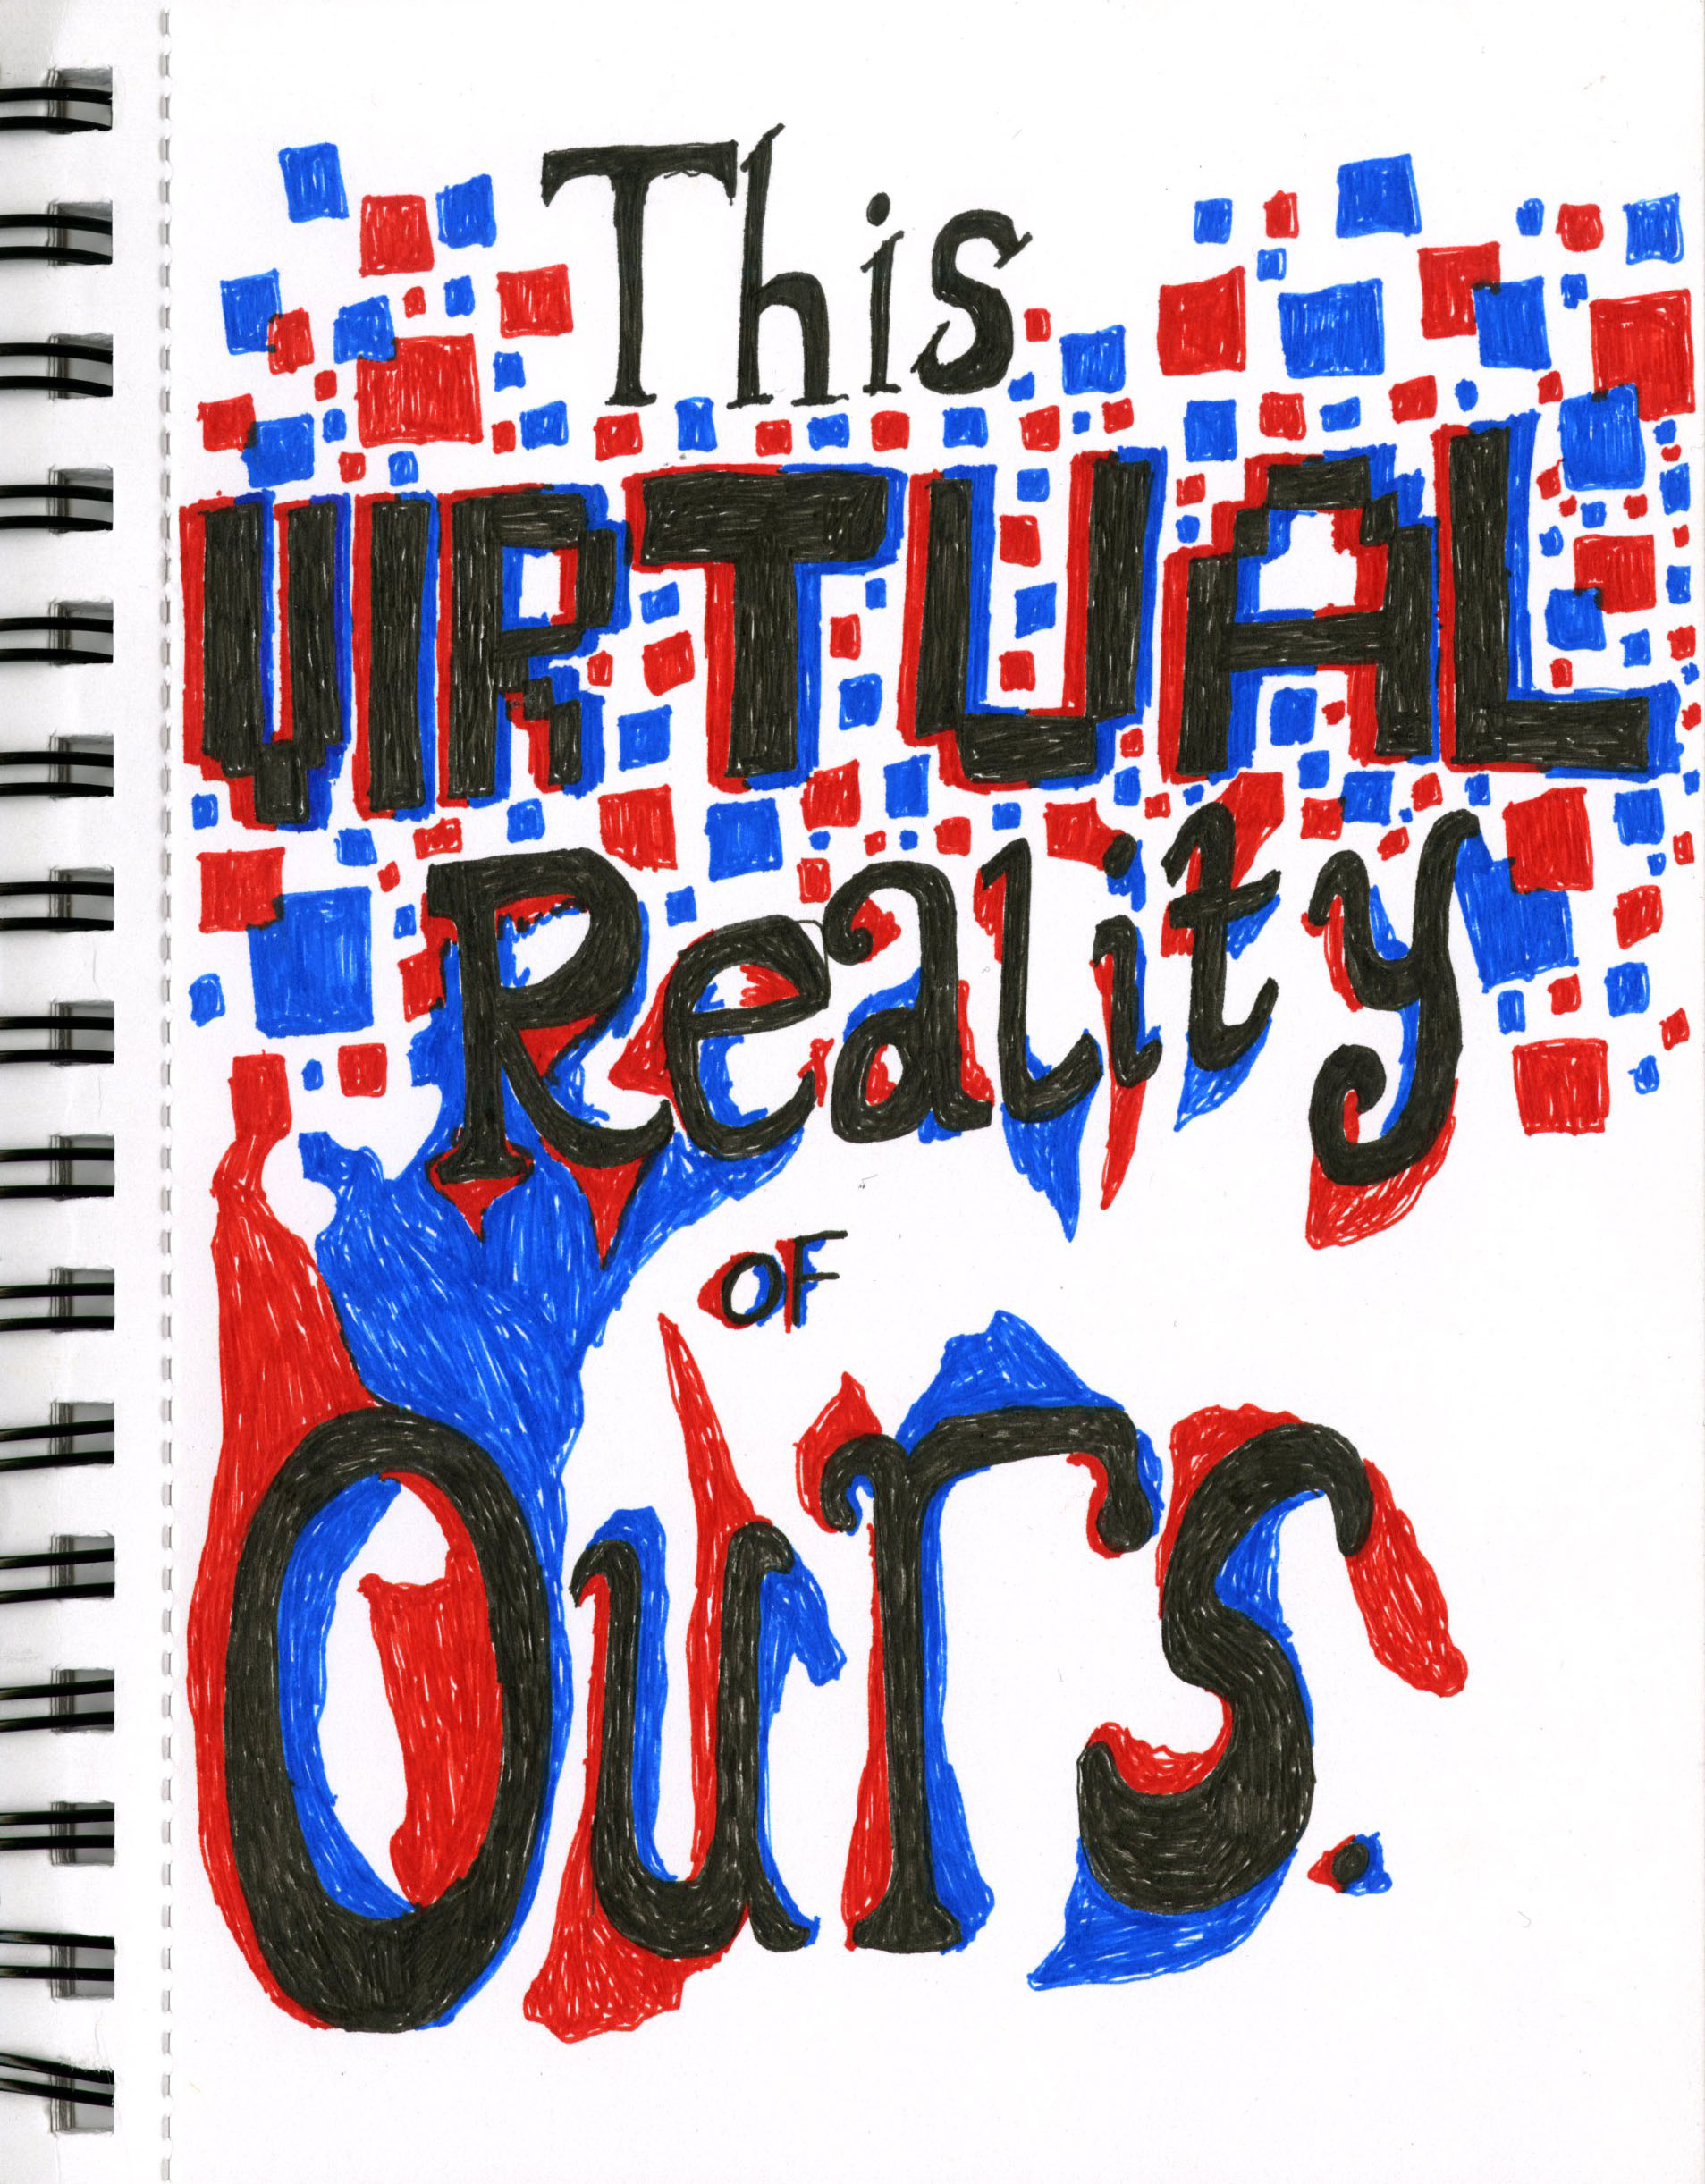 This
VIRTUAL
Reality
OF
Ours.